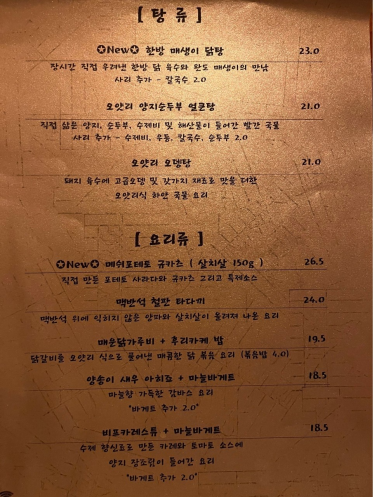 [ 탕 류 ]
✪New✪ 한방 매생이 닭탕 23.0
장시간 직접 우려낸 한방 닭 육수와 완도 매생이의 만남
사리 추가 - 칼국수 2.0
오얏리 양지순두부 얼큰탕 21.0
직접 삶은 양지, 순두부, 수제비 및 해산물이 들어간 빨간 국물
사리 추가 - 수제비, 우동, 칼국수, 순두부 2.0
오얏리 오뎅탕 21.0
돼지 육수에 고급오뎅 및 갖가지 재료로 맛을 더한
오얏리식 하얀 국물 요리
[ 요리류 ]
✪New✪ 메쉬포테토 규카츠 ( 살치살 150g ) 26.5
직접 만든 포테토 사라다와 규카츠 그리고 특제소스
맥반석 철판 타다끼 24.0
맥반석 위에 익히지 않은 양파와 살치살이 올려져 나온 요리
매운닭가루비 + 후리카케 밥 19.5
닭갈비를 오얏리 식으로 풀어낸 매콤한 닭 볶음 요리 (볶음밥 4.0)
양송이 새우 아히죠 + 마늘바게트 18.5
마늘향 가득한 감바스 요리
"바게트 추가 2.0"
비프카레스튜 + 마늘바게트 18.5
수제 향신료로 만든 카레와 토마토 소스에
양지 장조림이 들어간 요리
"바게트 추가 2.0"